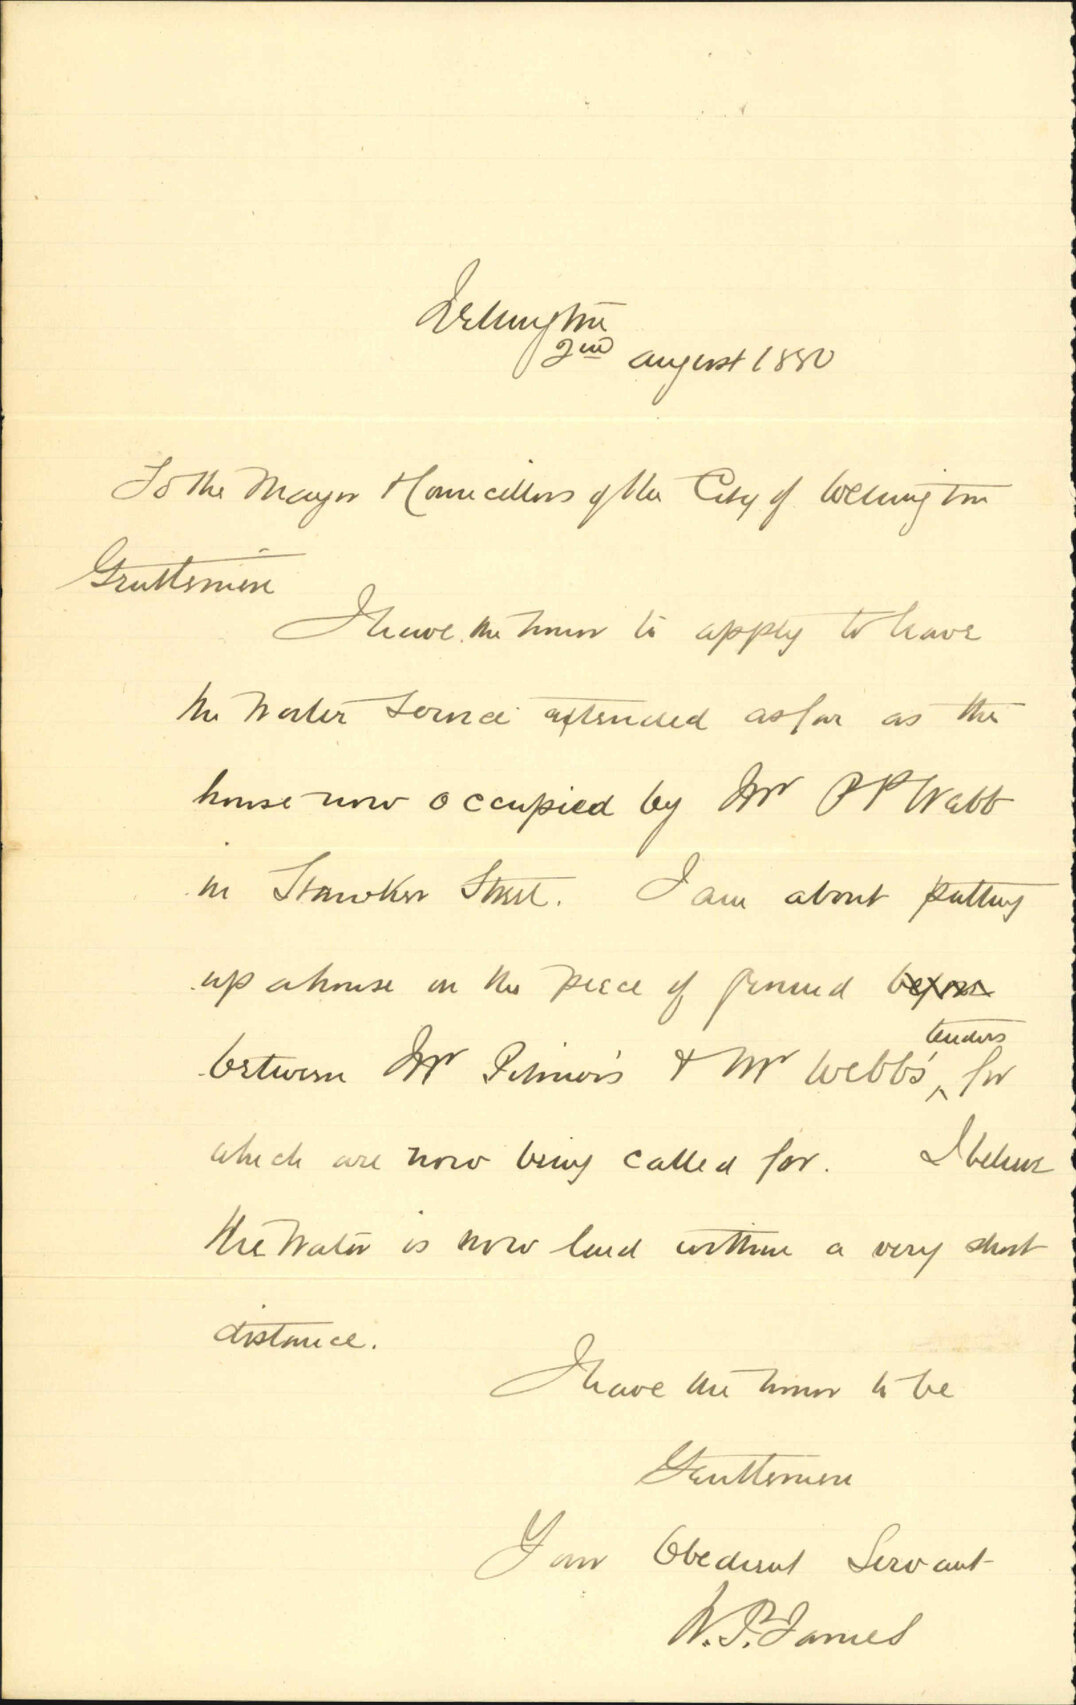 Wellington
2nd august 1880
To the Mayor & Councillors of the City of Wellington
Gentlemen
I have the honor to apply to have
the Water Service extended as far as the
house now occupied by Mr P P Webb
in Hawker Street. I am about putting
up a house on the piece of ground
between Mr & Mr Webb's tenders for
which are now being called for. I believe
the Water is now laid within a very short
distance.
I have the honor to be
Gentlemen
Your Obedient Servant
W. P. James